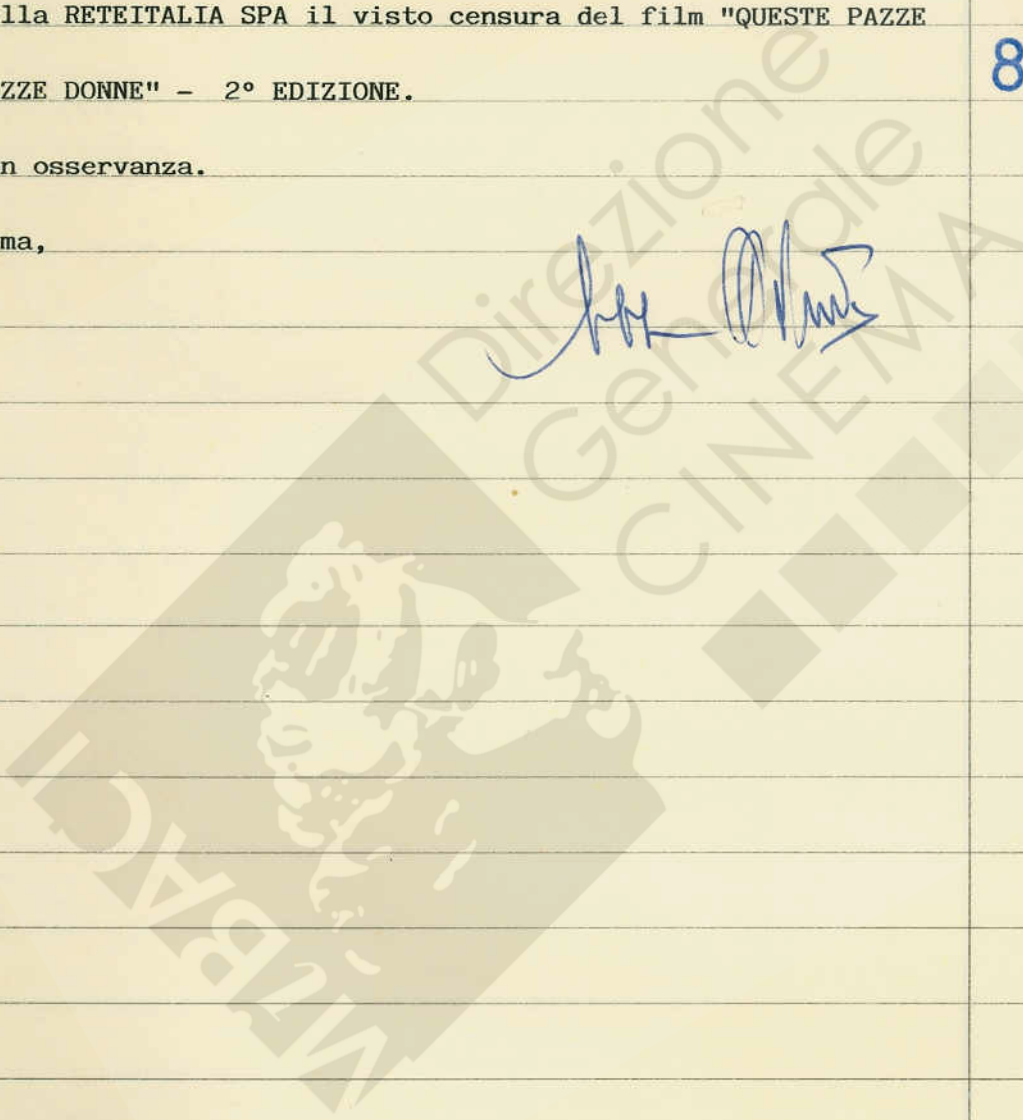 lla RETEITALIA SPA il visto censura del film "QUESTE PAZZE
8
ZZE DONNE" - 2° EDIZIONE.
n osservanza.
ma,
Direzione
Generale
CINEMA
MiBACT